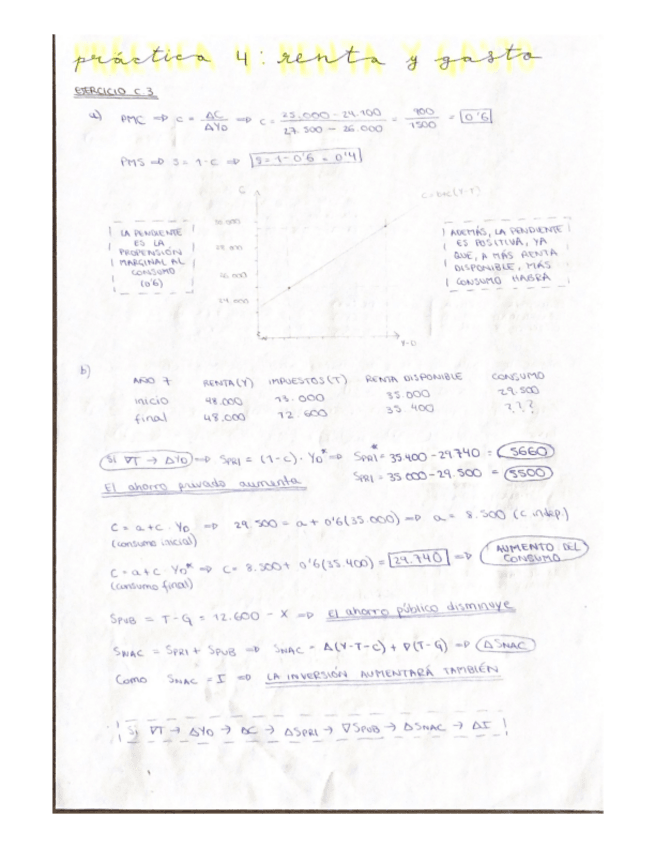 práctica 4: renta y gasto
EJERCICIO C.3
a) PMC => c = ΔC/ΔYD => c = 25.000 - 24.100 / 27.500 - 26.000 = 900/1500 = 0'6
PMS => s = 1 - c => s = 1 - 0'6 = 0'4
C
LA PENDIENTE
ES LA
PROPENSIÓN
MARGINAL AL
CONSUMO
(0'6)
ADEMÁS, LA PENDIENTE
ES POSITIVA, YA
QUE, A MÁS RENTA
DISPONIBLE, MÁS
CONSUMO HABRÁ
b)
AÑO 7 RENTA(Y) IMPUESTOS(T) RENTA DISPONIBLE CONSUMO
inicio 48.000 13.000 35.000 29.500
final 48.000 12.600 35.400 ???
Si ∇T → ΔYD => SPRI = (1-c)·YD* => SPRI* = 35400 - 29740 = 5660
SPRI = 35000 - 29.500 = 5500
El ahorro privado aumenta
C = a + c · YD => 29.500 = a + 0'6(35.000) => a = 8.500 (c. indep.)
(consumo inicial)
C = a + c · YD* => C = 8.500 + 0'6(35.400) = 29.740 => AUMENTO DEL CONSUMO
(consumo final)
SPUB = T - G = 12.600 - X => El ahorro público disminuye
SNAC = SPRI + SPUB => SNAC = Δ(Y-T-C) + ∇(T-G) => ΔSNAC
Como SNAC = I => LA INVERSIÓN AUMENTARÁ TAMBIÉN
Si ∇T → ΔYD → ΔC → ΔSPRI → ∇SPUB → ΔSNAC → ΔI